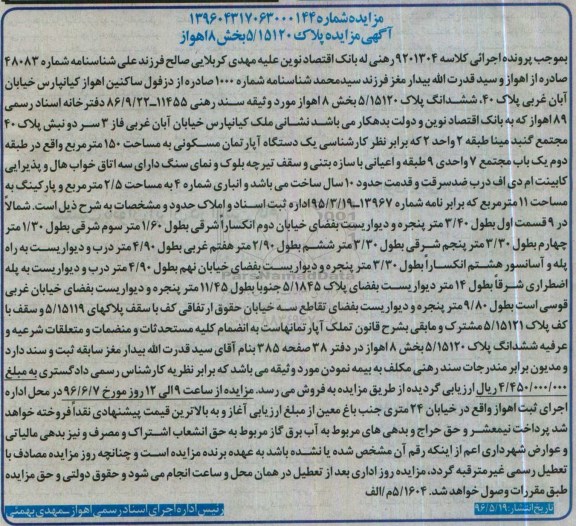 مزایده شماره ۱۳۹۶۰۴۳۱۷۰۶۳۰۰۰۱۴۴
آگهی مزایده پلاک ۵/۱۵۱۲۰ بخش ۸ اهواز
بموجب پرونده اجرائی کلاسه ۹۲۰۱۳۰۴ رهنی له بانک اقتصاد نوین علیه مهدی کربلایی صالح فرزند علی شناسنامه شماره ۴۸۰۸۳
صادره از اهواز و سید قدرت الله بیدار مغز فرزند سید محمد شناسنامه شماره ۱۰۰۰ صادره از دزفول ساکنین اهواز کیانپارس خیابان
آبان غربی پلاک ۴۰، ششدانگ پلاک ۵/۱۵۱۲۰ بخش ۸ اهواز مورد وثیقه سند رهنی ۱۱۴۵۵-۸۶/۹/۲۲ دفترخانه اسناد رسمی
۸۹ اهواز که به بانک اقتصاد نوین و دولت بدهکار می باشد نشانی ملک کیانپارس خیابان آبان غربی فاز ۳ سر دو نبش پلاک ۴۰
مجتمع گنبد مینا طبقه ۲ واحد ۲ که برابر نظر کارشناسی یک دستگاه آپارتمان مسکونی به مساحت ۱۵۰ مترمربع واقع در طبقه
دوم یک باب مجتمع ۷ واحدی ۹ طبقه و اعیانی با سازه بتنی و سقف تیرچه بلوک و نمای سنگ دارای سه اتاق خواب هال و پذیرایی
کابینت ام دی اف درب ضد سرقت و قدمت حدود ۱۰ سال ساخت می باشد و انباری شماره ۴ به مساحت ۲/۵ مترمربع و پارکینگ به
مساحت ۱۱ مترمربع که برابر نامه شماره ۱۳۹۶۷-۹۵/۳/۱۹ اداره ثبت اسناد و املاک حدود و مشخصات به شرح ذیل است. شمالاً
در ۹ قسمت اول بطول ۳/۴۰ متر پنجره و دیواریست بفضای خیابان دوم انکساراً شرقی بطول ۱/۶۰ متر سوم شرقی بطول ۱/۳۰ متر
چهارم بطول ۳/۳۰ متر پنجم شرقی بطول ۳/۳۰ متر ششم بطول ۲/۹۰ متر هفتم غربی بطول ۴/۹۰ متر درب و دیواریست به راه
پله و آسانسور هشتم انکساراً بطول ۳/۳۰ متر پنجره و دیواریست بفضای خیابان نهم بطول ۴/۹۰ متر درب و دیواریست به پله
اضطراری شرقاً بطول ۱۴ متر دیواریست بفضای پلاک ۵/۱۸۴۵ جنوبا بطول ۱۱/۴۵ متر پنجره و دیواریست بفضای خیابان غربی
قوسی است بطول ۹/۸۰ متر پنجره و دیواریست بفضای تقاطع سه خیابان حقوق ارتفاقی کف با سقف پلاکهای ۵/۱۵۱۱۹ و سقف با
کف پلاک ۵/۱۵۱۲۱ مشترک و مابقی بشرح قانون تملک آپارتمانهاست به انضمام کلیه مستحدثات و منضمات و متعلقات شرعیه و
عرفیه ششدانگ پلاک ۵/۱۵۱۲۰ بخش ۸ اهواز در دفتر ۳۸ صفحه ۳۸۵ بنام آقای سید قدرت الله بیدار مغز سابقه ثبت و سند دارد
و مدیون برابر مندرجات سند رهنی مکلف به بیمه نمودن مورد وثیقه می باشد که برابر نظریه کارشناس رسمی دادگستری به مبلغ
۴/۴۵۰/۰۰۰/۰۰۰ ریال ارزیابی گردیده از طریق مزایده به فروش می رسد. مزایده از ساعت ۹ الی ۱۲ روز مورخ ۹۶/۶/۷ در محل اداره
اجرای ثبت اهواز واقع در خیابان ۲۴ متری جنب باغ معین از مبلغ ارزیابی آغاز و به بالاترین قیمت پیشنهادی نقداً فروخته خواهد
شد پرداخت نیمعشر و حق حراج و بدهی های مربوط به آب برق گاز مربوط به حق انشعاب اشتراک و مصرف و نیز بدهی مالیاتی
و عوارض شهرداری اعم از اینکه رقم آن مشخص شده یا نشده باشد به عهده برنده مزایده است و چنانچه روز مزایده مصادف با
تعطیل رسمی غیرمترقبه گردد، مزایده روز اداری بعد از تعطیل در همان محل و ساعت انجام می شود و حقوق دولتی و حق مزایده
طبق مقررات وصول خواهد شد. ۵/۱۶۰۴م/الف
تاریخ انتشار: ۹۶/۵/۱۹
رئیس اداره اجرای اسناد رسمی اهواز - مهدی بهمئی